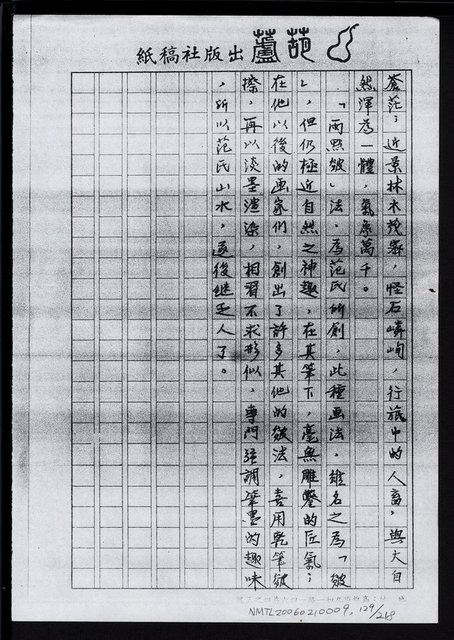 紙稿社版出蘆葩
蒼茫；近景林木茂密，怪石嶙峋，行旅中的人畜，與大自
然渾為一體，氣象萬千。
「雨點皴」法，為范氏所創，此種画法，雖名之為「皴
」，但仍極近自然之神趣，在其筆下，毫無雕鑿的匠氣；
在他以後的画家們，創出了許多其他的皴法，喜用乾筆皴
擦，再以淡墨渲染，相習不求形似，專門强調筆墨的趣味
，所以范氏山水，遂後继乏人了。
NMTL20060210009, 129/218